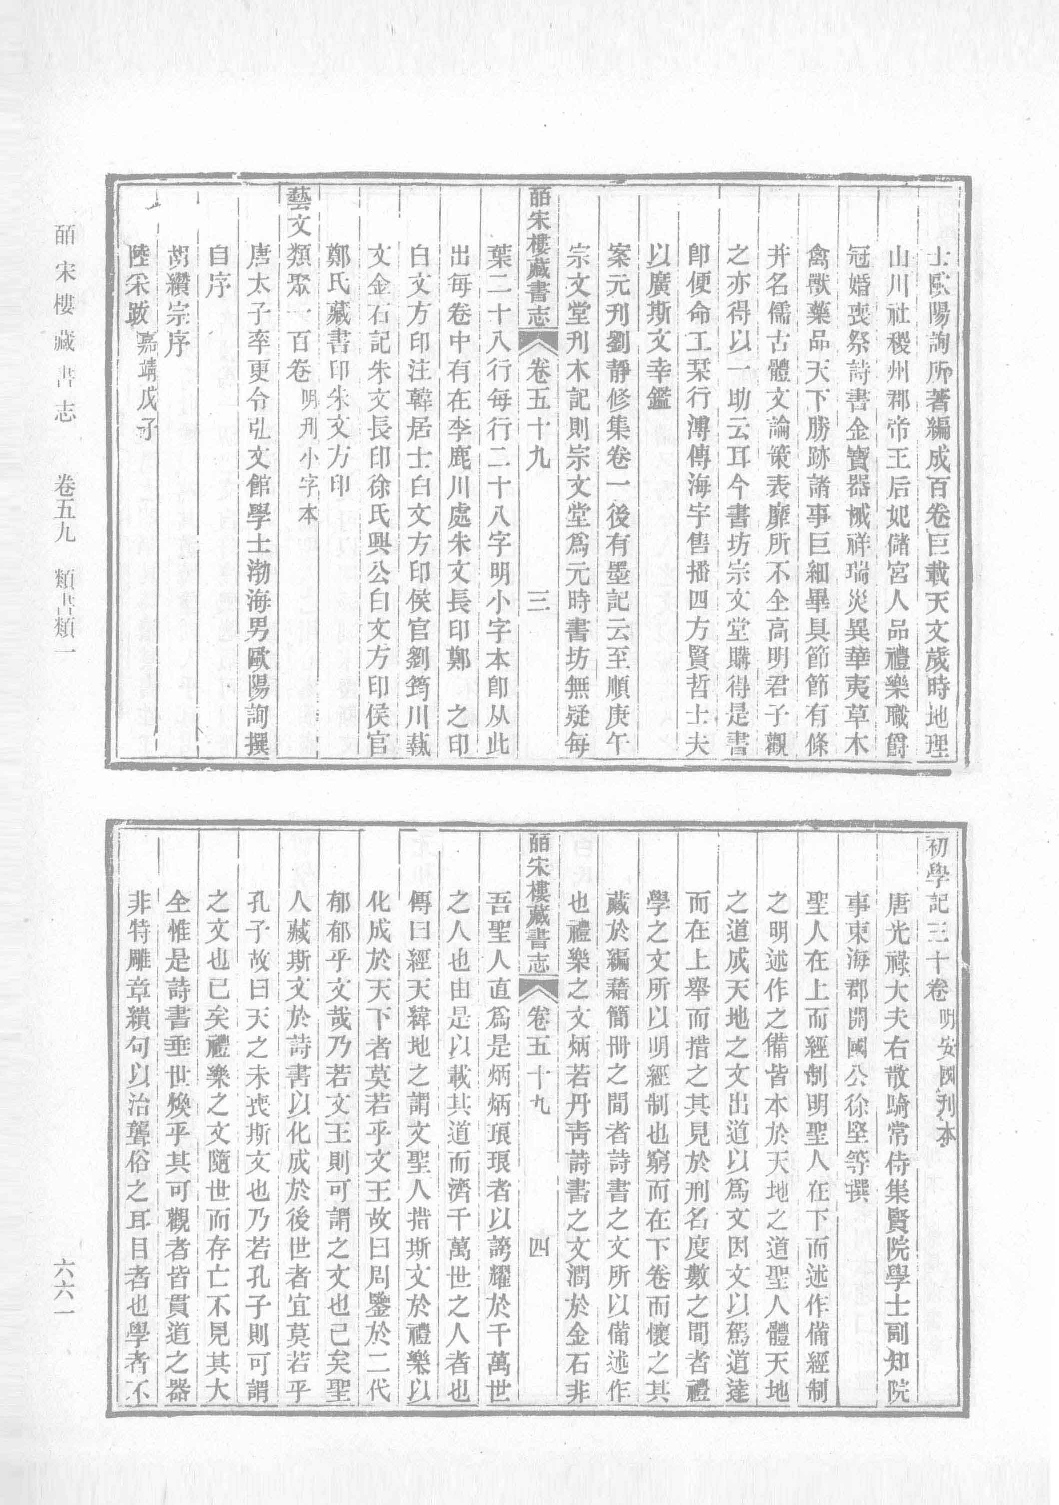 士歐陽詢所著編成百卷巨載天文歲時地理
山川社稷州郡帝王后妃儲宮人品禮樂職爵
冠婚喪祭詩書金寶器械祥瑞災異華夷草木
禽獸藥品天下勝跡諸事巨細畢具節節有條
并名儒古體文論策表靡所不全高明君子觀
之亦得以一助云耳今書坊宗文堂購得是書
卽便命工栞行溥傳海宇售播四方賢哲士夫
以廣斯文幸鑑
案元刊劉靜修集卷一後有墨記云至順庚午
宗文堂刊木記則宗文堂爲元時書坊無疑每
皕宋樓藏書志 卷五十九 三
葉二十八行每行二十八字明小字本卽从此
出每卷中有在李鹿川處朱文長印鄭 之印
白文方印注韓居士白文方印侯官劉筠川執
文金石記朱文長印徐氏興公白文方印侯官
鄭氏藏書印朱文方印
藝文類聚一百卷 明刊小字本
唐太子率更令弘文館學士渤海男歐陽詢撰
自序
胡纘宗序
陸采跋 嘉靖戊子
初學記三十卷 明安國刊本
唐光祿大夫右散騎常侍集賢院學士副知院
事東海郡開國公徐堅等撰
聖人在上而經制明聖人在下而述作備經制
之明述作之備皆本於天地之道聖人體天地
之道成天地之文出道以爲文因文以駕道達
而在上舉而措之其見於刑名度數之間者禮
學之文所以明經制也窮而在下卷而懷之其
藏於編藉簡冊之間者詩書之文所以備述作
也禮樂之文炳若丹靑詩書之文潤於金石非
皕宋樓藏書志 卷五十九 四
吾聖人直爲是炳炳琅琅者以誇耀於千萬世
之人也由是以載其道而濟千萬世之人者也
傳曰經天緯地之謂文聖人措斯文於禮樂以
化成於天下者莫若乎文王故曰周鑒於二代
郁郁乎文哉乃若文王則可謂之文也已矣聖
人藏斯文於詩書以化成於後世者宜莫若乎
孔子故曰天之未喪斯文也乃若孔子則可謂
之文也已矣禮樂之文隨世而存亡不見其大
全惟是詩書垂世煥乎其可觀者皆貫道之器
非特雕章繢句以治聾俗之耳目者也學者不
皕宋樓藏書志 卷五九 類書類一
六六一